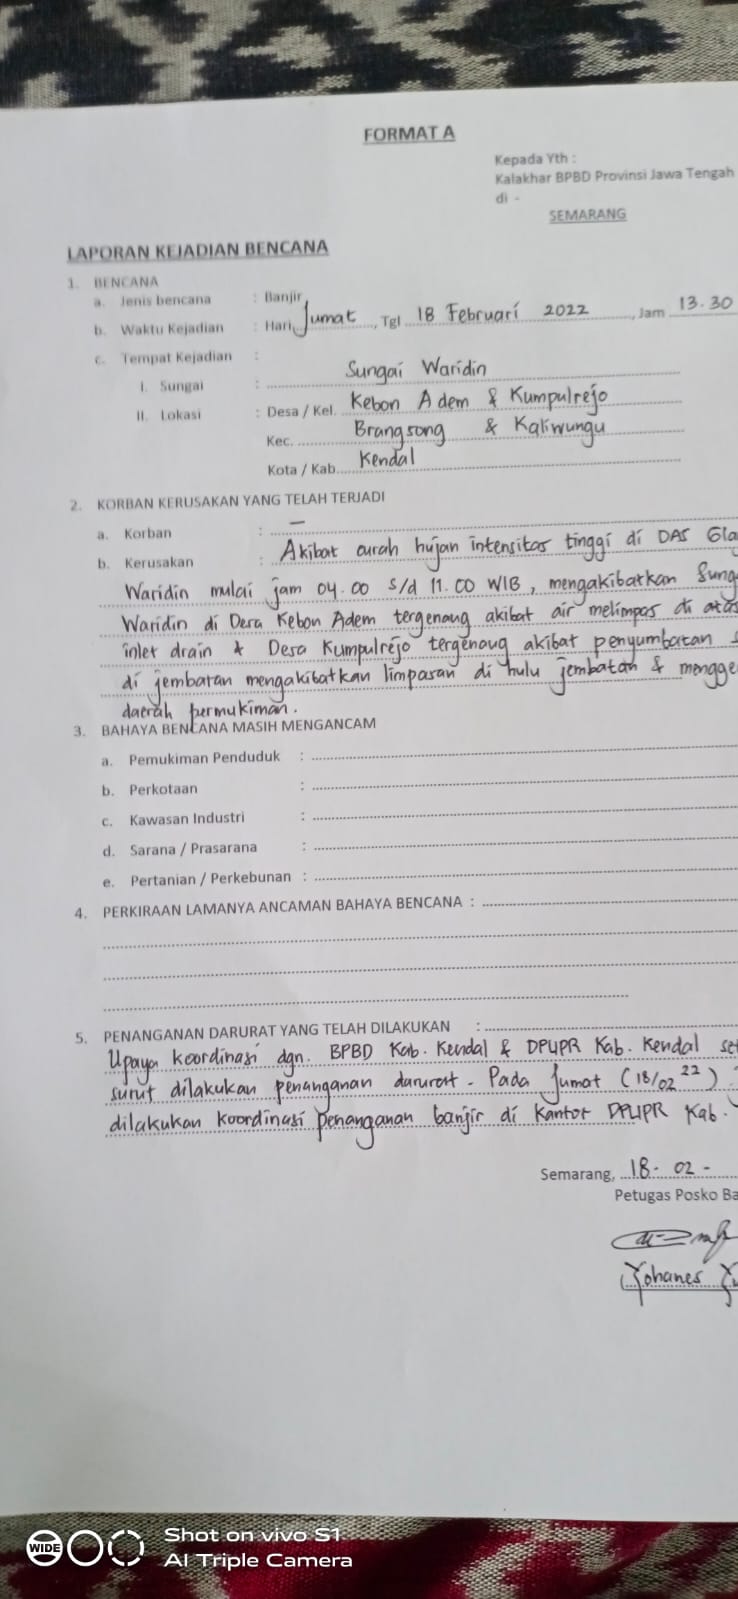 FORMAT A
Kepada Yth :
Kalakhar BPBD Provinsi Jawa Tengah
di -
SEMARANG
LAPORAN KEJADIAN BENCANA
1. BENCANA
a. Jenis bencana : Banjir
b. Waktu Kejadian : Hari Jumat, Tgl 18 Februari 2022, Jam 13.30
c. Tempat Kejadian :
I. Sungai : Sungai Waridin
II. Lokasi : Desa / Kel. Kebon Adem & Kumpulrejo
Kec. Brangsong & Kaliwungu
Kota / Kab. Kendal
2. KORBAN KERUSAKAN YANG TELAH TERJADI
a. Korban : -
b. Kerusakan : Akibat curah hujan intensitas tinggi di DAS Gla
Waridin mulai jam 04.00 s/d 11.00 WIB, mengakibatkan Sung
Waridin di Desa Kebon Adem tergenang akibat air melimpas di atas
inlet drain & Desa Kumpulrejo tergenang akibat penyumbatan s
di jembatan mengakibatkan limpasan di hulu jembatan & mengge
daerah permukiman.
3. BAHAYA BENCANA MASIH MENGANCAM
a. Pemukiman Penduduk :
b. Perkotaan :
c. Kawasan Industri :
d. Sarana / Prasarana :
e. Pertanian / Perkebunan :
4. PERKIRAAN LAMANYA ANCAMAN BAHAYA BENCANA :
5. PENANGANAN DARURAT YANG TELAH DILAKUKAN :
Upaya koordinasi dgn. BPBD Kab. Kendal & DPUPR Kab. Kendal set
surut dilakukan penanganan darurat. Pada Jumat (18/02 22)
dilakukan koordinasi penanganan banjir di Kantor DPUPR Kab.
Semarang, 18 - 02 -
Petugas Posko Ba
Yohanes
WIDE
Shot on vivo S1
AI Triple Camera